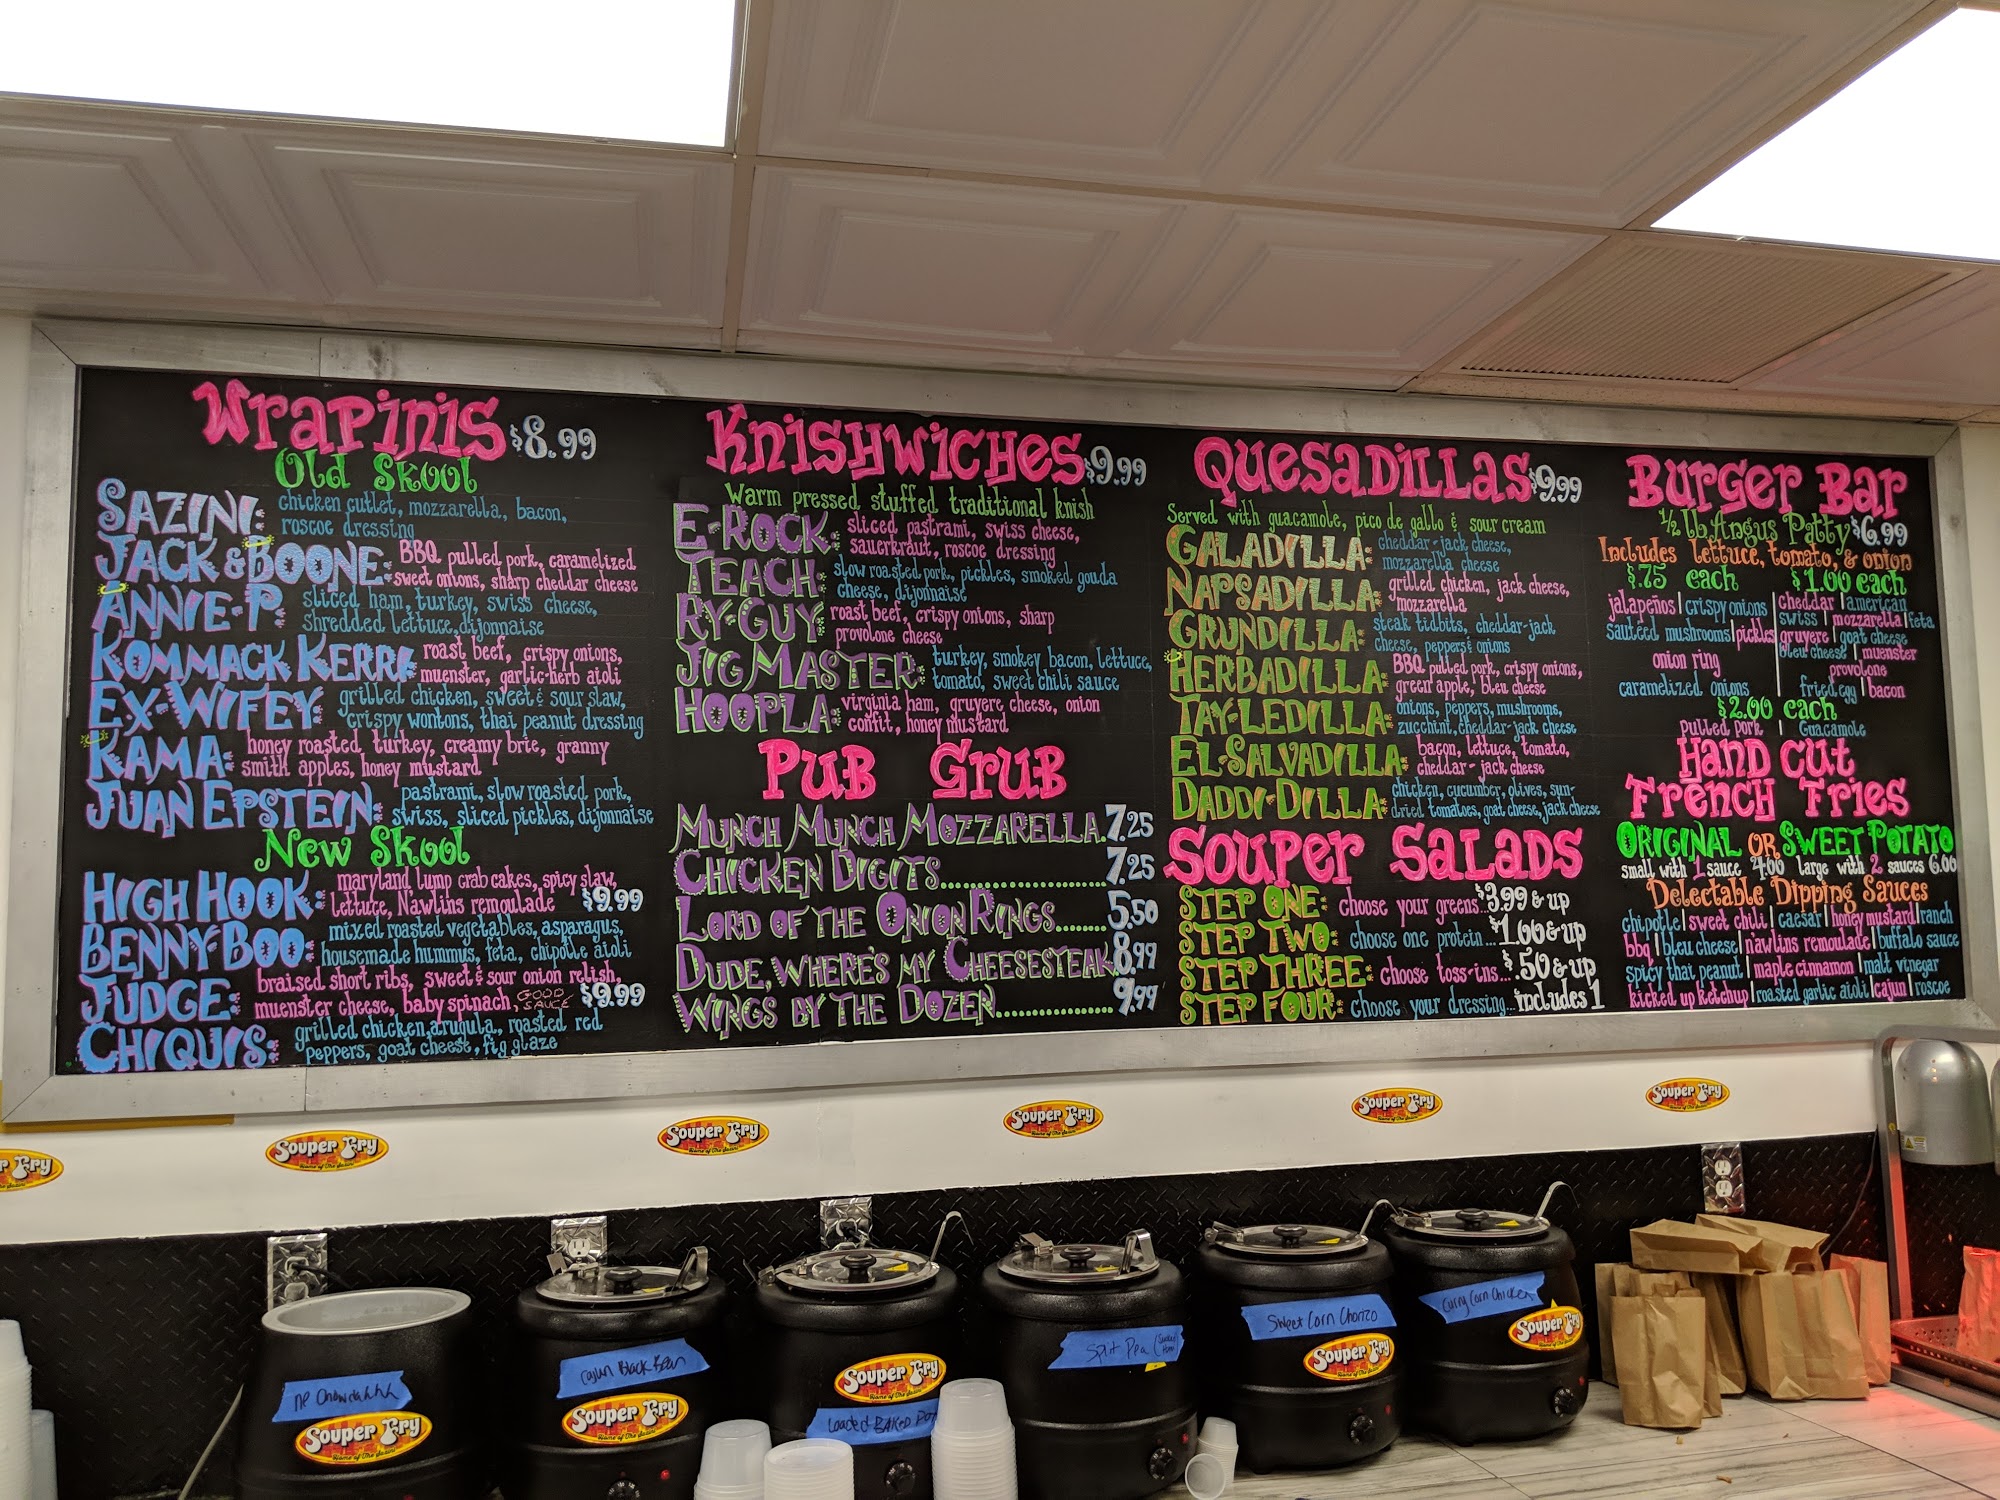 Wrapinis $8.99
Old Skool
SAZINI: chicken cutlet, mozzarella, bacon,
roscoe dressing
JACK & BOONE: BBQ pulled pork, caramelized
sweet onions, sharp cheddar cheese
ANNIE-P: sliced ham, turkey, swiss cheese,
shredded lettuce, dijonnaise
KOMMACK KERRI: roast beef, crispy onions,
muenster, garlic-herb aioli
EX-WIFEY: grilled chicken, sweet & sour slaw,
crispy wontons, thai peanut dressing
KAMA: honey roasted turkey, creamy brie, granny
smith apples, honey mustard
JUAN EPSTEIN: pastrami, slow roasted pork,
swiss, sliced pickles, dijonnaise
New Skool
HIGH HOOK: maryland lump crab cakes, spicy slaw,
lettuce, Nawlins remoulade $9.99
BENNY-BOO: mixed roasted vegetables, asparagus,
housemade hummus, feta, chipotle aioli
JUDGE: braised short ribs, sweet & sour onion relish,
muenster cheese, baby spinach, GOOD SAUCE $9.99
CHIQUIS: grilled chicken, arugula, roasted red
peppers, goat cheese, fig glaze
Knishwiches $9.99
Warm pressed stuffed traditional knish
E-ROCK: sliced pastrami, swiss cheese,
sauerkraut, roscoe dressing
TEACH: slow roasted pork, pickles, smoked gouda
cheese, dijonnaise
RY-GUY: roast beef, crispy onions, sharp
provolone cheese
JIG MASTER: turkey, smokey bacon, lettuce,
tomato, sweet chili sauce
HOOPLA: virginia ham, gruyere cheese, onion
confit, honey mustard
Pub Grub
MUNCH MUNCH MOZZARELLA. 7.25
CHICKEN DIGITS.................... 7.25
LORD OF THE ONION RINGS....... 5.50
DUDE, WHERE'S MY CHEESESTEAK 8.99
WINGS BY THE DOZEN.............. 9.99
Quesadillas $9.99
Served with guacamole, pico de gallo & sour cream
GALADILLA: cheddar-jack cheese,
mozzarella cheese
NAPSADILLA: grilled chicken, jack cheese,
mozzarella
GRUNDILLA: steak tidbits, cheddar-jack
cheese, peppers & onions
HERBADILLA: BBQ pulled pork, crispy onions,
green apple, bleu cheese
TAY-LEDILLA: onions, peppers, mushrooms,
zucchini, cheddar-jack cheese
EL-SALVADILLA: bacon, lettuce, tomato,
cheddar-jack cheese
DADDI-DILLA: chicken, cucumber, olives, sun-
dried tomatoes, goat cheese, jack cheese
Souper Salads
STEP ONE: choose your greens.. $3.99 & up
STEP TWO: choose one protein... $1.00 & up
STEP THREE: choose toss-ins... $.50 & up
STEP FOUR: choose your dressing... includes 1
Burger Bar
1/2 lb Angus Patty $6.99
Includes lettuce, tomato, & onion
$.75 each
jalapeños | crispy onions
sauteed mushrooms | pickles
onion ring
caramelized onions
$1.00 each
cheddar | american
swiss | mozzarella | feta
gruyere | goat cheese
bleu cheese | muenster
provolone
fried egg | bacon
$2.00 each
pulled pork | Guacamole
Hand Cut
French Fries
ORIGINAL OR SWEET POTATO
small with 1 sauce 4.00 large with 2 sauces 6.00
Delectable Dipping Sauces
chipotle | sweet chili | caesar | honey mustard | ranch
bbq | bleu cheese | nawlins remoulade | buffalo sauce
spicy thai peanut | maple cinnamon | malt vinegar
kicked up ketchup | roasted garlic aioli | cajun | roscoe
r Fry
Souper Fry
Home of The Sazini
Souper Fry
Home of The Sazini
Souper Fry
Home of The Sazini
Souper Fry
Home of The Sazini
Souper Fry
Home of The Sazini
NE Chowdahhh
Souper Fry
Home of The Sazini
Cajun Black Bean
Souper Fry
Home of The Sazini
Souper Fry
Home of The Sazini
Loaded BAKED
Split Pea
Sweet Corn Chorizo
Souper Fry
Home of The Sazini
Curry Corn Chicken
Souper Fry
Home of The Sazini